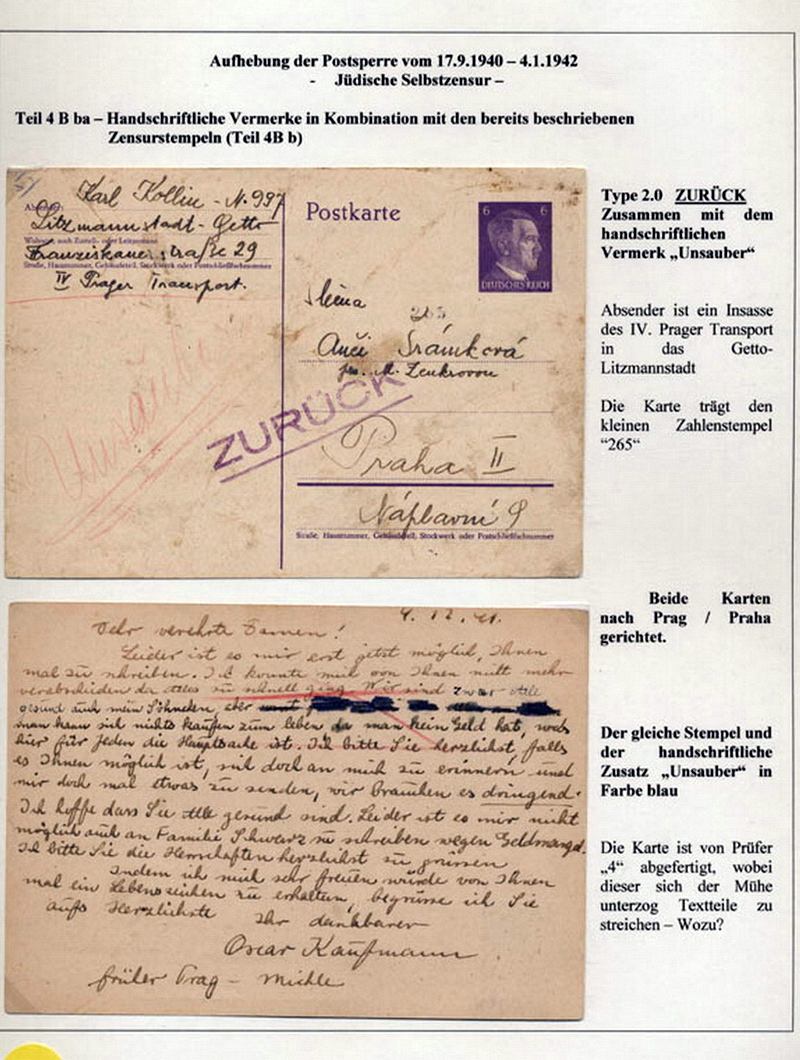 Aufhebung der Postsperre vom 17.9.1940 – 4.1.1942
- Jüdische Selbstzensur –
Teil 4 B ba – Handschriftliche Vermerke in Kombination mit den bereits beschriebenen
Zensurstempeln (Teil 4B b)
Karl Kollin - N. 997
Litzmannstadt - Getto
Wohnort, auch Zustell- oder Leitpostamt
Franziskaner straße 29
Straße, Hausnummer, Gebäudeteil, Stockwerk oder Postschließfachnummer
IV Prager Transport.
Unsauber
Postkarte
6 6
DEUTSCHES REICH
Slečna
265
Anči Šrámková
ZURÜCK
Praha II
Náplavní 9
Straße, Hausnummer, Gebäudeteil, Stockwerk oder Postschließfachnummer
Type 2.0 ZURÜCK
Zusammen mit dem
handschriftlichen
Vermerk „Unsauber“
Absender ist ein Insasse
des IV. Prager Transport
in das Getto-
Litzmannstadt
Die Karte trägt den
kleinen Zahlenstempel
“265“
4. 12. 41.
Sehr verehrte Damen!
Leider ist es mir erst jetzt möglich, Ihnen
mal zu schreiben. Ich konnte mich von Ihnen nicht mehr
verabschieden da alles zu schnell ging. Wir sind zwar alle
gesund auch mein Söhnchen, aber
man kann sich nichts kaufen zum leben da man kein Geld hat, was
hier für jeden die Hauptsache ist. Ich bitte Sie herzlichst, falls
es Ihnen möglich ist, sich doch an mich zu erinnern und
mir doch mal etwas zu senden, wir brauchen es dringend.
Ich hoffe dass Sie alle gesund sind. Leider ist es mir nicht
möglich auch an Familie Schwarz zu schreiben wegen Geldmangel.
Ich bitte Sie die Herrschaften herzlichst zu grüssen
Indem ich mich sehr freuen würde von Ihnen
mal ein Lebenszeichen zu erhalten, begrüsse ich Sie
aufs Herzlichste Ihr dankbarer
Oscar Kaufmann
früher Prag - Michle
Beide Karten
nach Prag / Praha
gerichtet.
Der gleiche Stempel und
der handschriftliche
Zusatz „Unsauber“ in
Farbe blau
Die Karte ist von Prüfer
„4“ abgefertigt, wobei
dieser sich der Mühe
unterzog Textteile zu
streichen – Wozu?